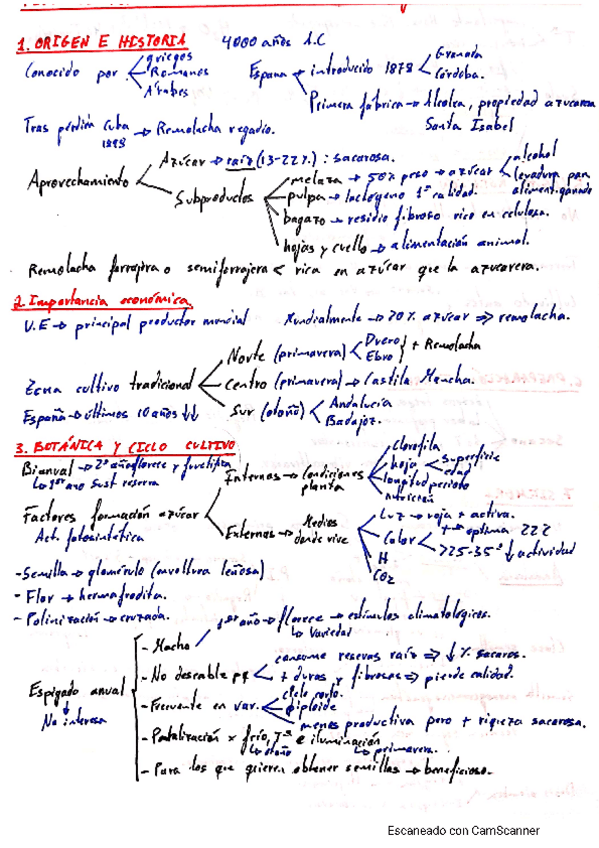 1. ORIGEN E HISTORIA 4000 años A.C
Conocido por griegos
Romanos
Árabes
España introducido 1878 Granada
Córdoba.
Primera fábrica → Alcolea, propiedad azucarera
Santa Isabel
Tras pérdida Cuba → Remolacha regadío.
1898
Aprovechamiento
Azúcar → raíz (13-22%) : sacarosa.
Subproductos
melaza → 50% peso → azúcar alcohol
levadura para
aliment. ganado
pulpa → lactógeno 1ª calidad.
bagazo → residio fibroso rico en celulosa.
hojas y cuello → alimentación animal.
Remolacha forrajera o semiforrajera < rica en azúcar que la azucarera.
2. Importancia económica
U.E → principal productor mundial Mundialmente → 20% azúcar ⇒ remolacha.
Zona cultivo tradicional
Norte (primavera) Duero
Ebro } + Remolacha
Centro (primavera) → Castilla Mancha.
Sur (otoño) Andalucía
Badajoz.
España → últimos 10 años ↓↓
3. BOTÁNICA Y CICLO CULTIVO
Bianual → 2º año florece y fructifica
↳ 1er año Sust reserva
Factores formación azúcar
Act. fotosintética
Internos → Condiciones
planta
Clorofila
hoja Superficie
edad
longitud periodo
nutrición
Externos → Medios
donde vive
Luz → roja + activa.
Calor Tª optima 22º
>25-35º ↓ actividad
H
CO2
- Semilla → glomérulo (envoltura leñosa)
- Flor → hermafrodita.
- Polinización → cruzada.
Espigado anual
↓
No interesa
- Mucho 1er año → florece → estímulos climatológicos.
↳ Variedad
- No deseable pq consume reservas raíz ⇒ ↓ % sacaros.
+ duras y fibrosas ⇒ pierde calidad.
- Frecuente en var. ciclo corto.
diploide
menos productiva pero + riqueza sacarosa.
x frío, Tª e iluminación
↳ otoño ↳ primavera.
- Para los que quieren obtener semillas → beneficioso.
Escaneado con CamScanner